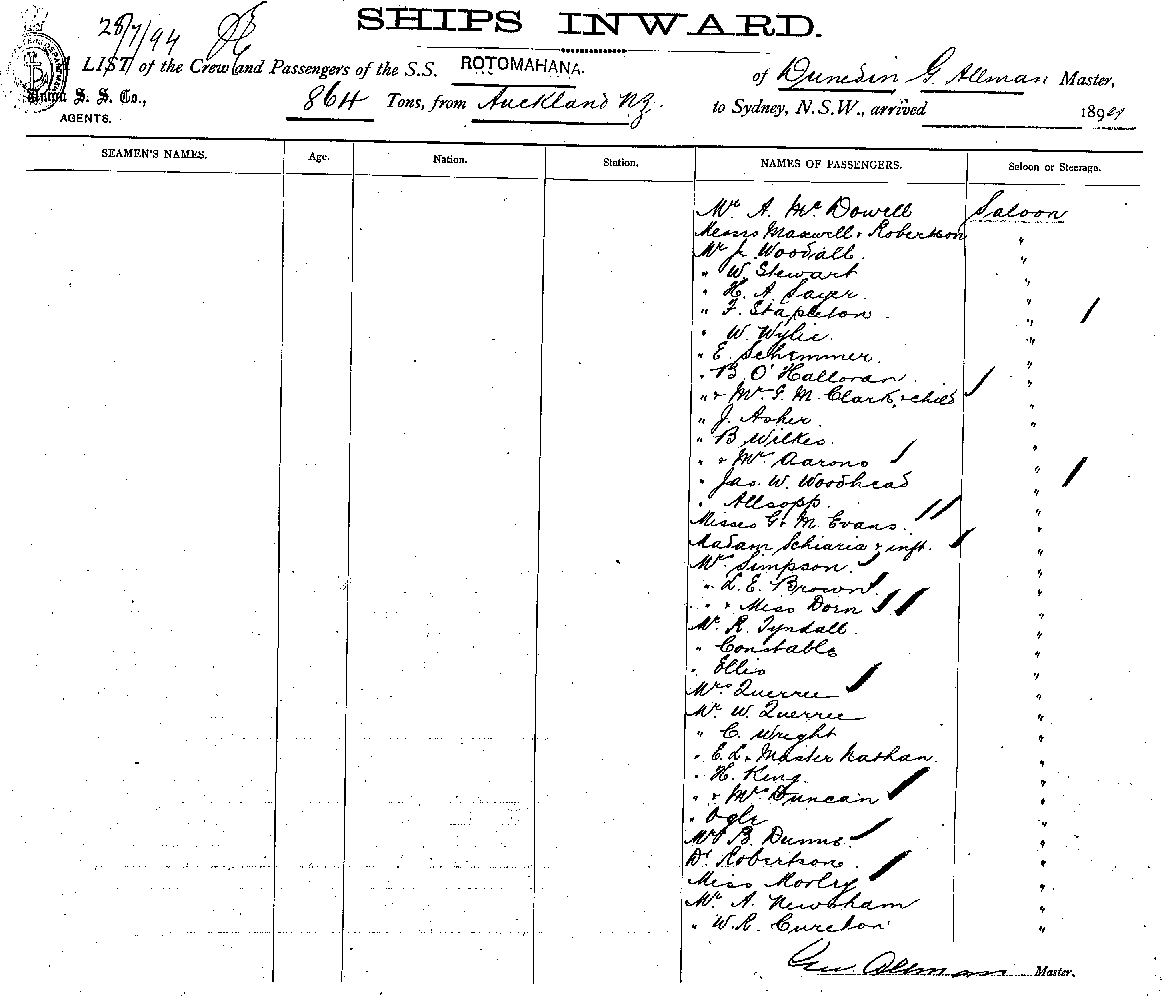 SHIPS INWARD.
28/7/94
LIST of the Crew and Passengers of the S.S. ROTOMAHANA. of Dunedin G. Allman Master,
Union S. S. Co., 864 Tons, from Auckland N.Z. to Sydney, N.S.W., arrived 1894
AGENTS.
SEAMEN'S NAMES. Age. Nation. Station. NAMES OF PASSENGERS. Saloon or Steerage.
Mr A. McDowell Saloon
Messrs Maxwell & Robertson "
Mr J. Woodall "
" W. Stewart "
" H. A. Sayer "
" F. Stapleton "
" W. Wylie "
" E. Schimmer "
" B. O'Halloran "
" & Mrs G. M. Clark & child "
" J. Asher "
" B Wilkes "
" & Mrs Aarons "
" Jas. W. Woodhead "
" Allsopp "
Misses G & M. Evans "
Madam Schiaria & inft. "
Mrs Simpson "
" L. E. Brown "
" & Miss Dorn "
Mr R. Tyndall "
" Constable "
" Ellis "
Mrs Querree "
Mr W. Querree "
" C. Wright "
" E. L. & Master Nathan "
" H. King "
" & Mrs Duncan "
" Ogle "
Mrs B. Dunne "
Dr Robertson "
Miss Morley "
Mr A. Newsham "
" W. R. Cureton "
Geo Allman Master.